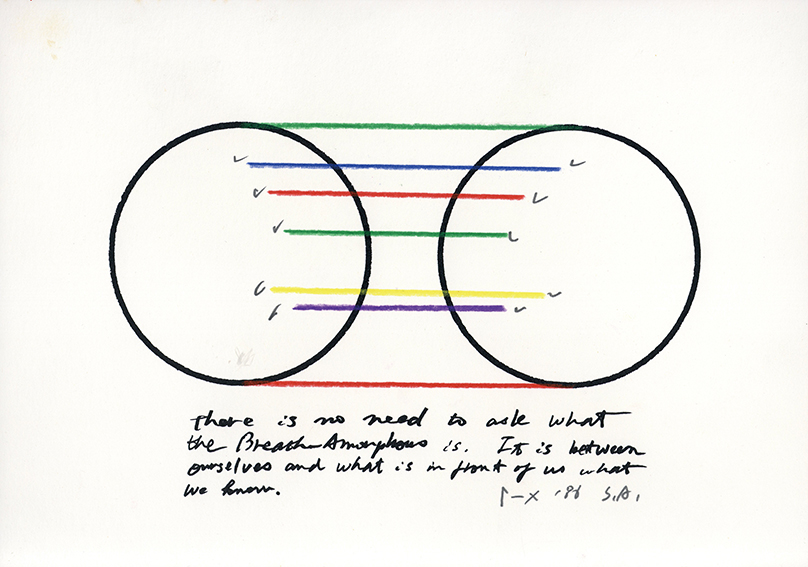 There is no need to ask what
the Breath-Amorphous is. It is between
ourselves and what is in front of us what
we know.
Γ-X '86 S.A.